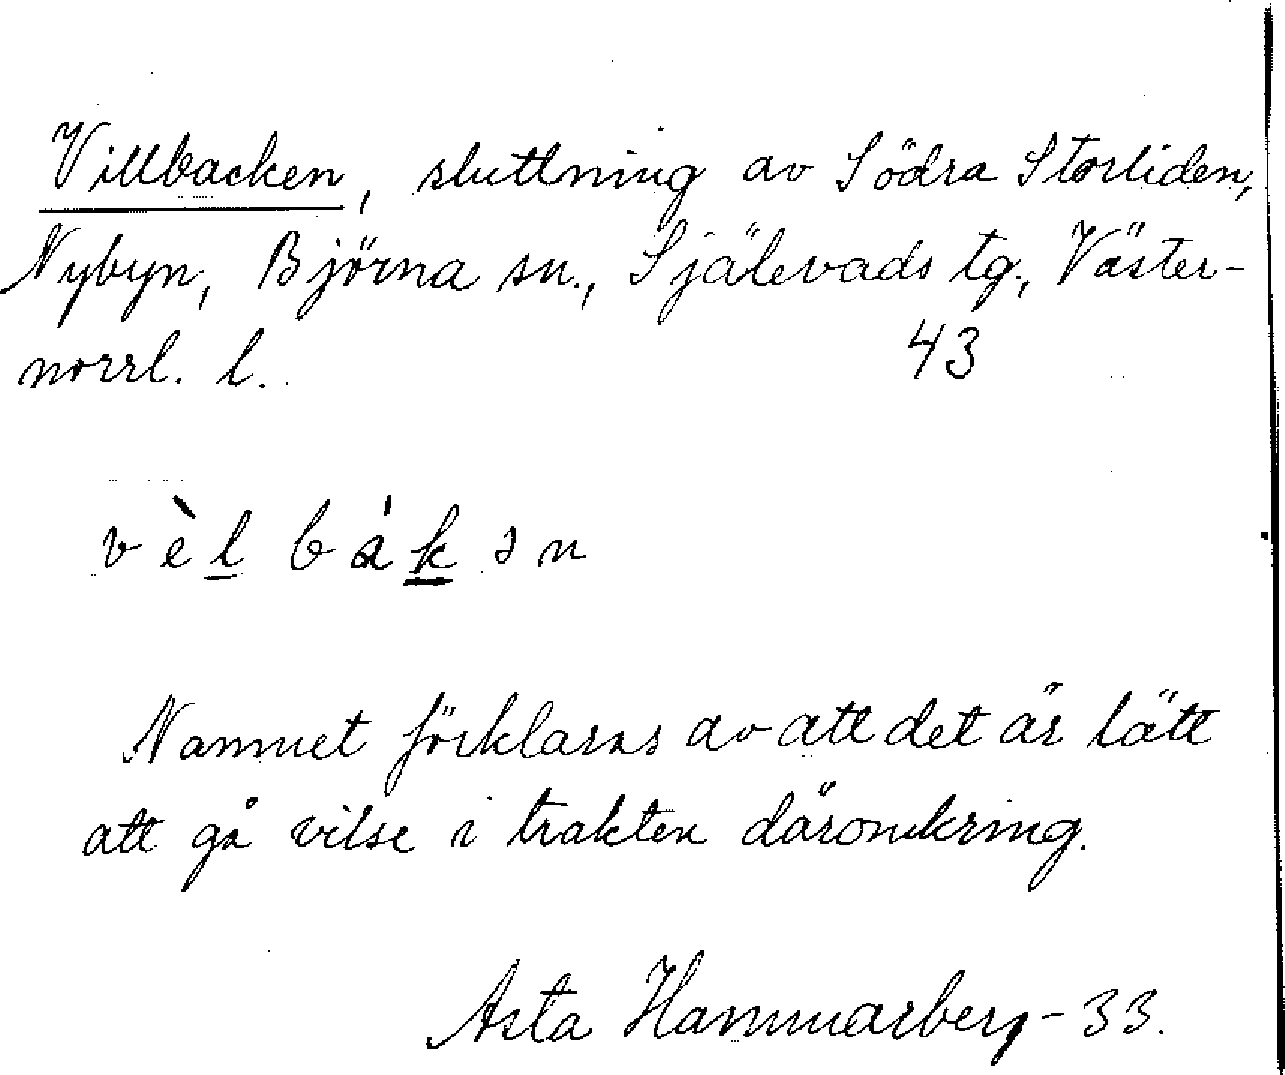 Villbacken, sluttning av Södra Storliden,
Nybyn, Björna sn., Själevads tg., Väster-
norrl. l. 43
vèl bákən
Namnet förklaras av att det är lätt
att gå vilse i trakten däromkring.
Asta Hammarberg -33.